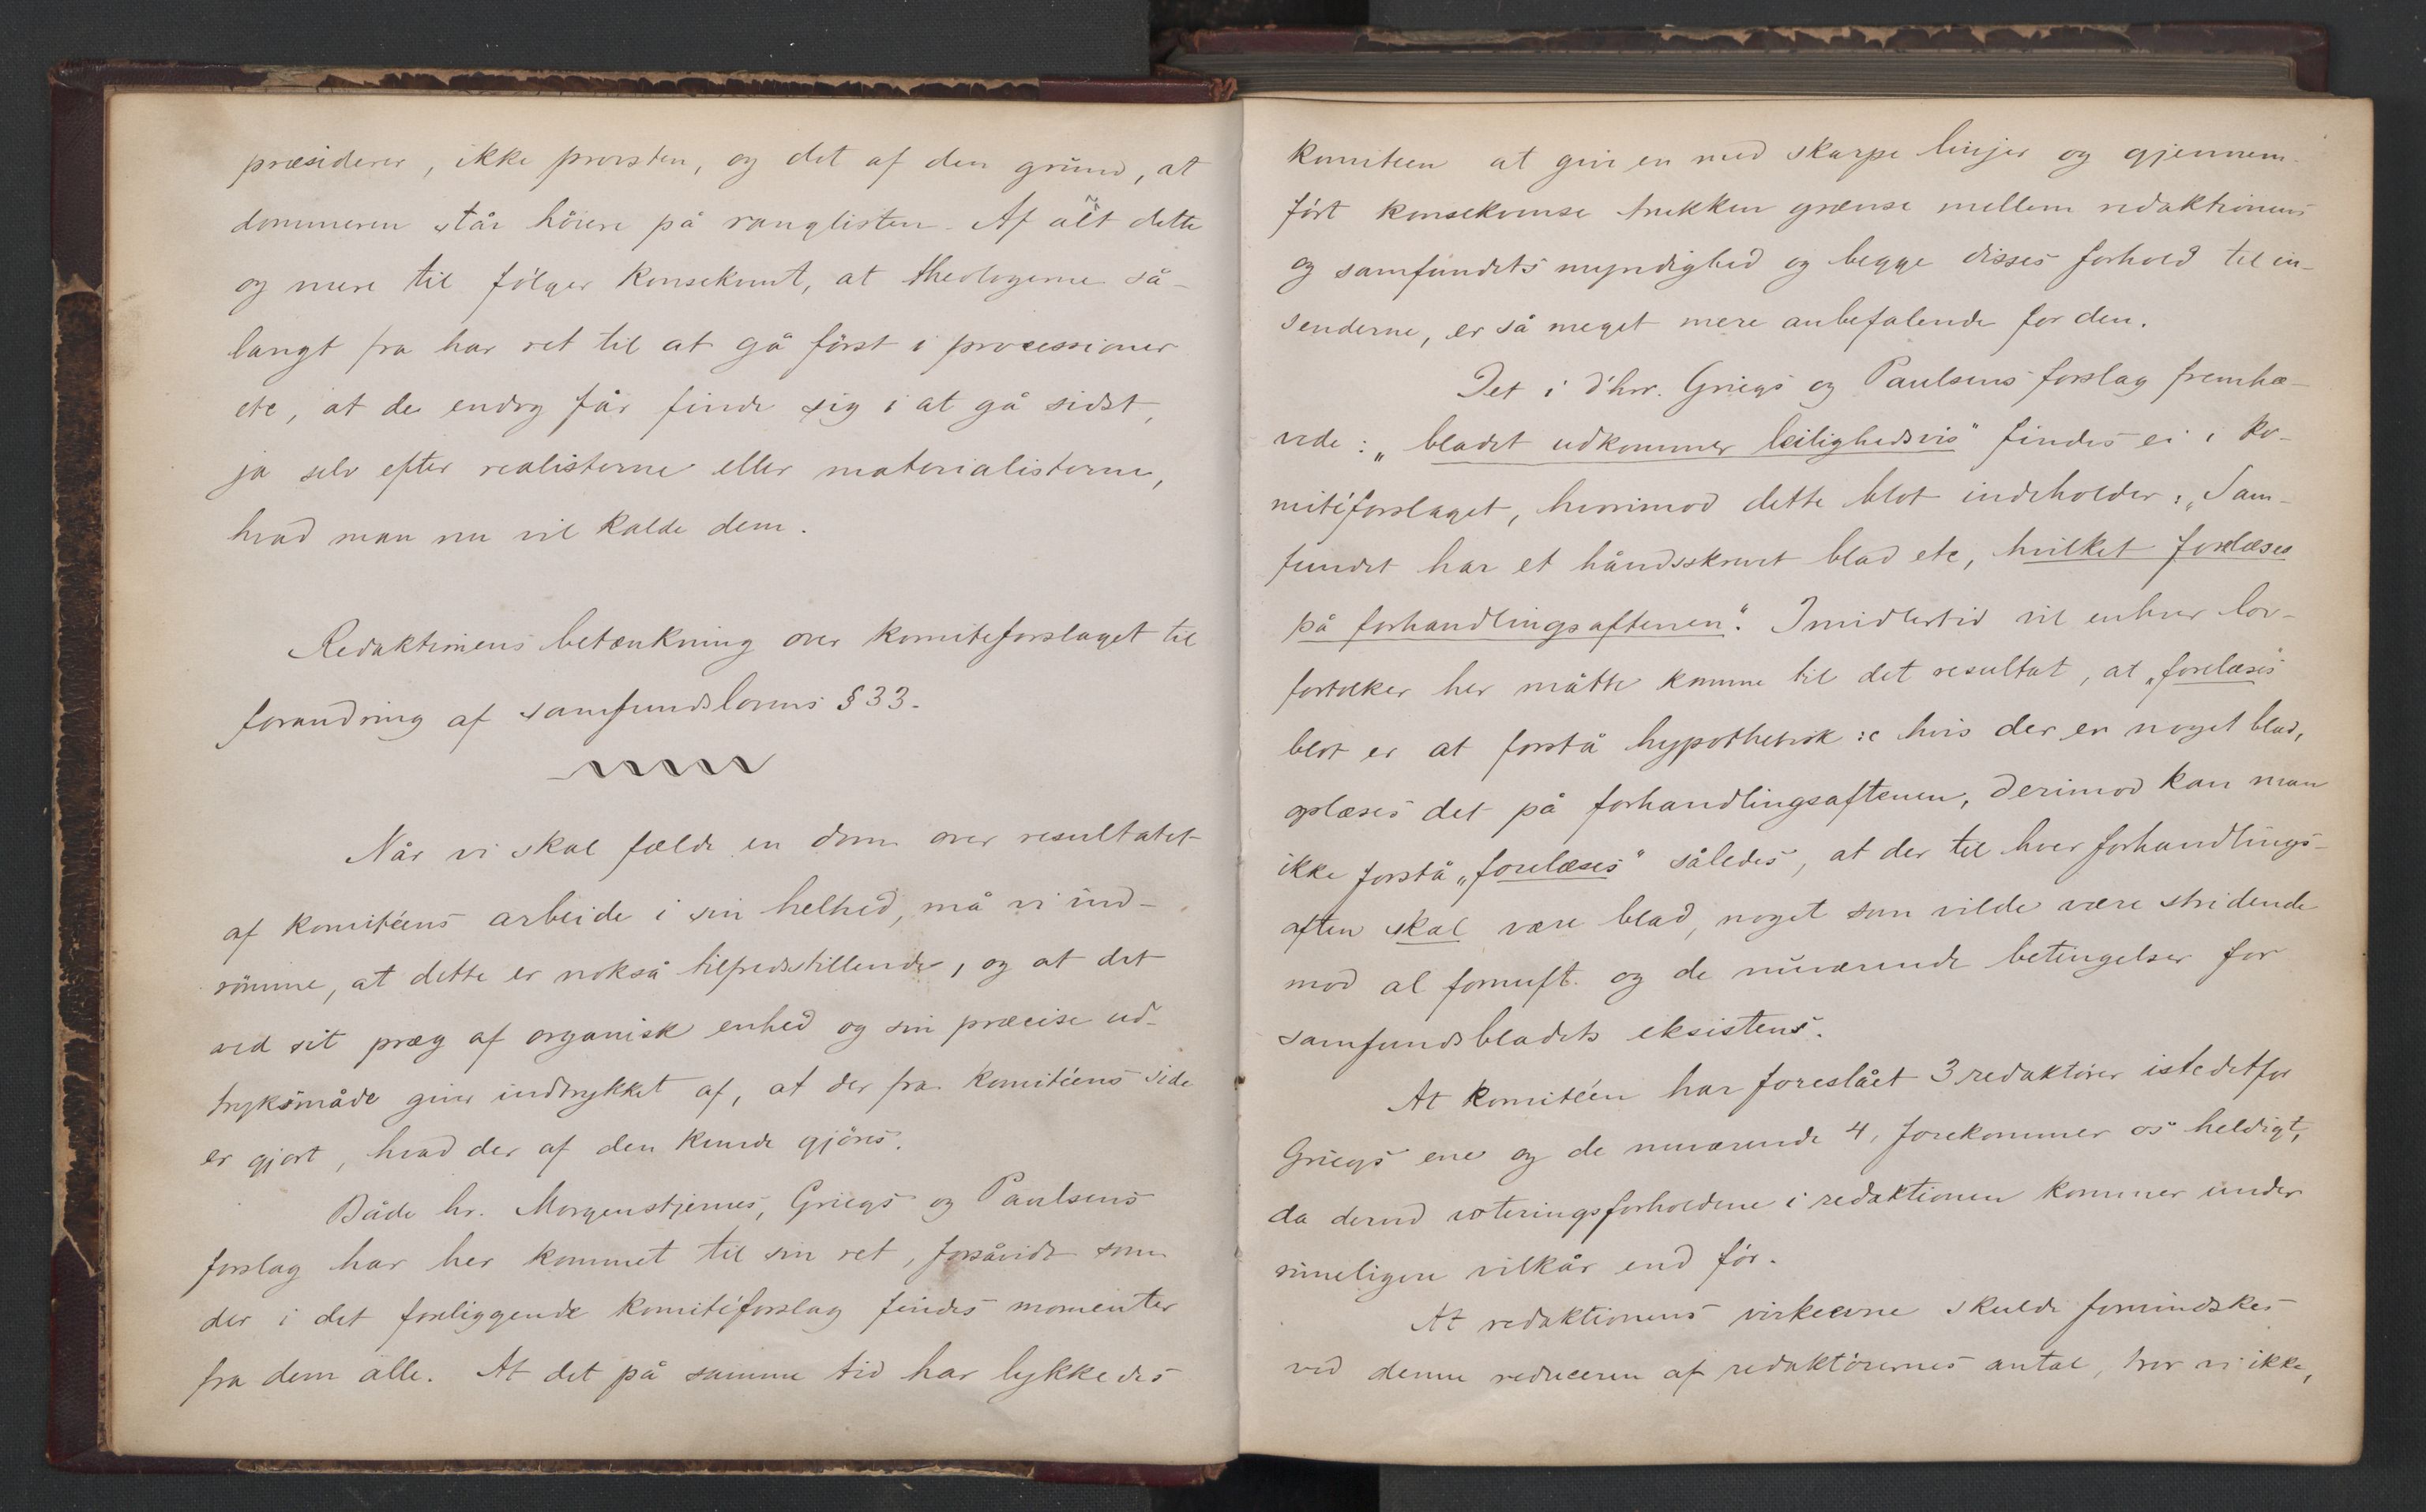 præsiderer, ikke provsten, og det af den grund, at
dommeren står höiere på ranglisten. Af alt dette
og mere til fölger konsekvent, at theologerne så-
langt fra har ret til at gå först i processioner
etc, at de endog får finde sig i at gå sidst,
ja selv efter realisterne eller materialisterne,
hvad man nu vil kalde dem.
Redaktionens betænkning over komiteforslaget til
forandring af samfundslovens § 33.
Når vi skal fælde en dom over resultatet
af komitéens arbeide i sin helhed, må vi ind-
römme, at dette er nokså tilfredsstillende, og at det
ved sit præg af organisk enhed og sin præcise ud-
tryksmåde giver indtrykket af, at der fra komitéens side
er gjort, hvad der af den kunde gjöres.
Både hr. Morgenstjernes, Griegs og Paulsens
forslag har her kommet til sin ret, forsåvidt som
der i det foreliggende komitéforslag findes momenter
fra dem alle. At det på samme tid har lykkedes
komiteen at give en med skarpe linjer og gjennem-
fört konsekvense trukken grænse mellem redaktionens
og samfundets myndighed og begge disses forhold til in-
senderne, er så meget mere anbefalende for den.
Det i d'hrr. Griegs og Paulsens forslag fremhæ-
vede: „bladet udkommer leilighedsvis" findes ei i ko-
mitéforslaget, hvorimod dette blot indeholder: „Sam-
fundet har et håndsskrevet blad etc, hvilket forelæses
på forhandlingsaftenen". Imidlertid vil enhver lov-
fortolker her måtte komme til det resultat, at „forelæses"
blot er at forstå hypothetisk :c hvis der er noget blad,
oplæses det på forhandlingsaftenen, derimod kan man
ikke forstå „forelæses" således, at der til hver forhandlings-
aften skal være blad, noget som vilde være stridende
mod al fornuft og de nuværende betingelser for
samfundsbladets eksistens.
At komitéen har foreslået 3 redaktörer istedetfor
Griegs ene og de nuværende 4, forekommer os heldigt,
da derved voteringsforholdene i redaktionen kommer under
rimeligere vilkår end för.
At redaktionens virkeevne skulde formindskes
ved denne reduceren af redaktörernes antal, tror vi ikke,